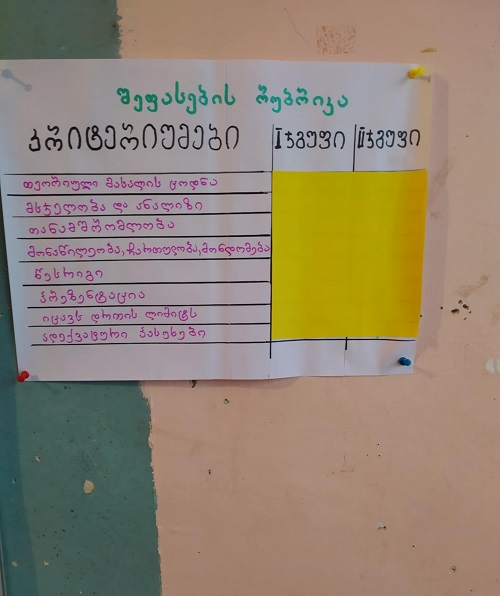 შეფასების რუბრიკა
კრიტერიუმები Iჯგუფი IIჯგუფი
თეორიული მასალის ცოდნა
მსჯელობა და ანალიზი
თანამშრომლობა
მონაწილეობა,ჩართულობა,მონდომება
წესრიგი
პრეზენტაცია
იცავს დროის ლიმიტს
ადექვატური პასუხები